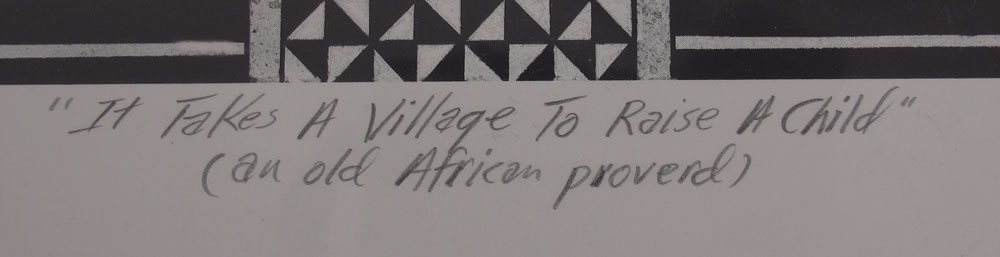 "It Takes A Village To Raise A Child"
(an old African proverd)